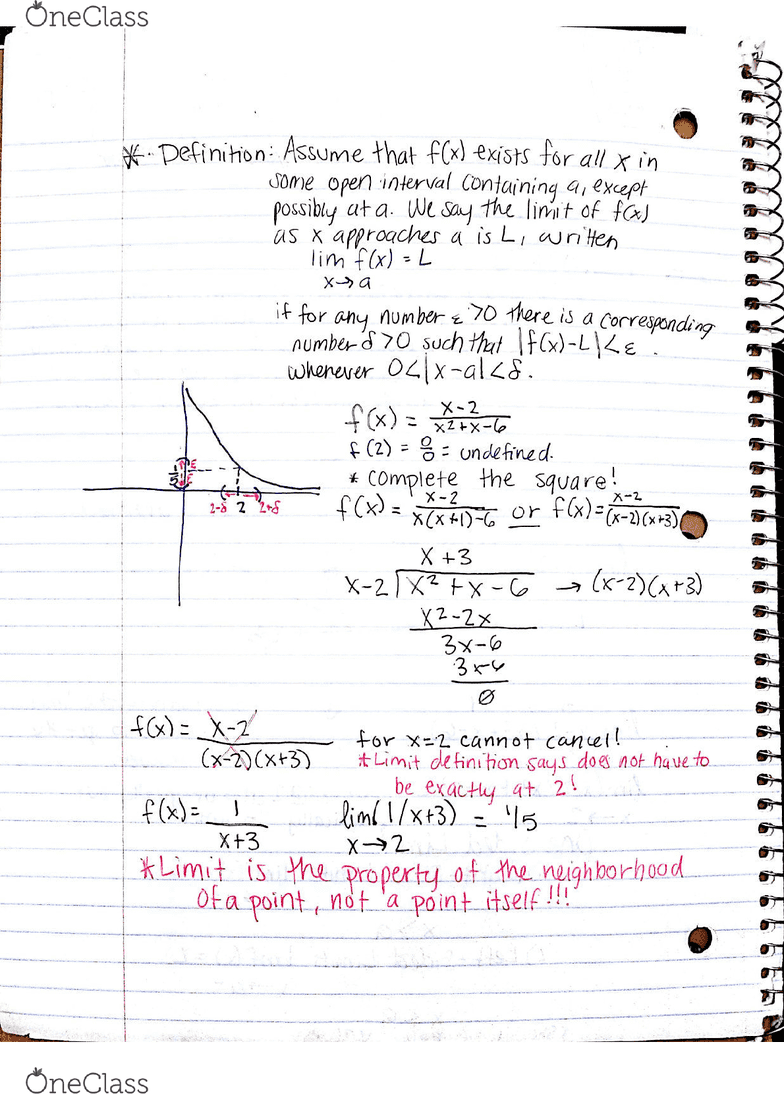 OneClass
* · Definition: Assume that f(x) exists for all x in
some open interval containing a, except
possibly at a. We say the limit of f(x)
as x approaches a is L, written
lim f(x) = L
x→a
if for any number ε>0 there is a corresponding
number δ>0 such that |f(x)-L|<ε.
whenever 0<|x-a|<δ.
f(x) = x-2 / x²+x-6
f(2) = 0/0 = undefined.
* complete the square!
f(x) = x-2 / x(x+1)-6 or f(x) = x-2 / (x-2)(x+3)
1/5 ε ε
2-δ 2 2+δ
x+3
x-2 | x² + x - 6 → (x-2)(x+3)
x²-2x
3x-6
3x-6
0
f(x) = x-2 / (x-2)(x+3)
for x=2 cannot cancel!
*Limit definition says does not have to
be exactly at 2!
f(x) = 1 / x+3
lim(1/x+3) = 1/5
x→2
*Limit is the property of the neighborhood
of a point, not a point itself!!!
OneClass